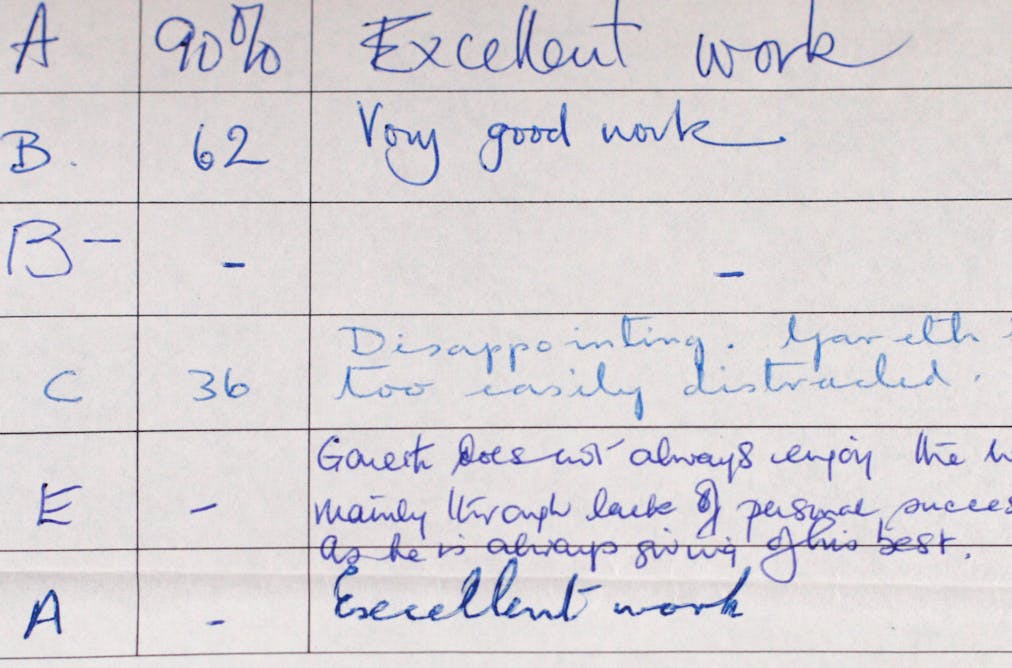 A 90% Excellent work
B. 62 Very good work
B- - -
Disappointing. Gareth
C 36 too easily distracted.
Gareth does not always enjoy the
E - mainly through lack of personal success
as he is always giving of his best.
A - Excellent work